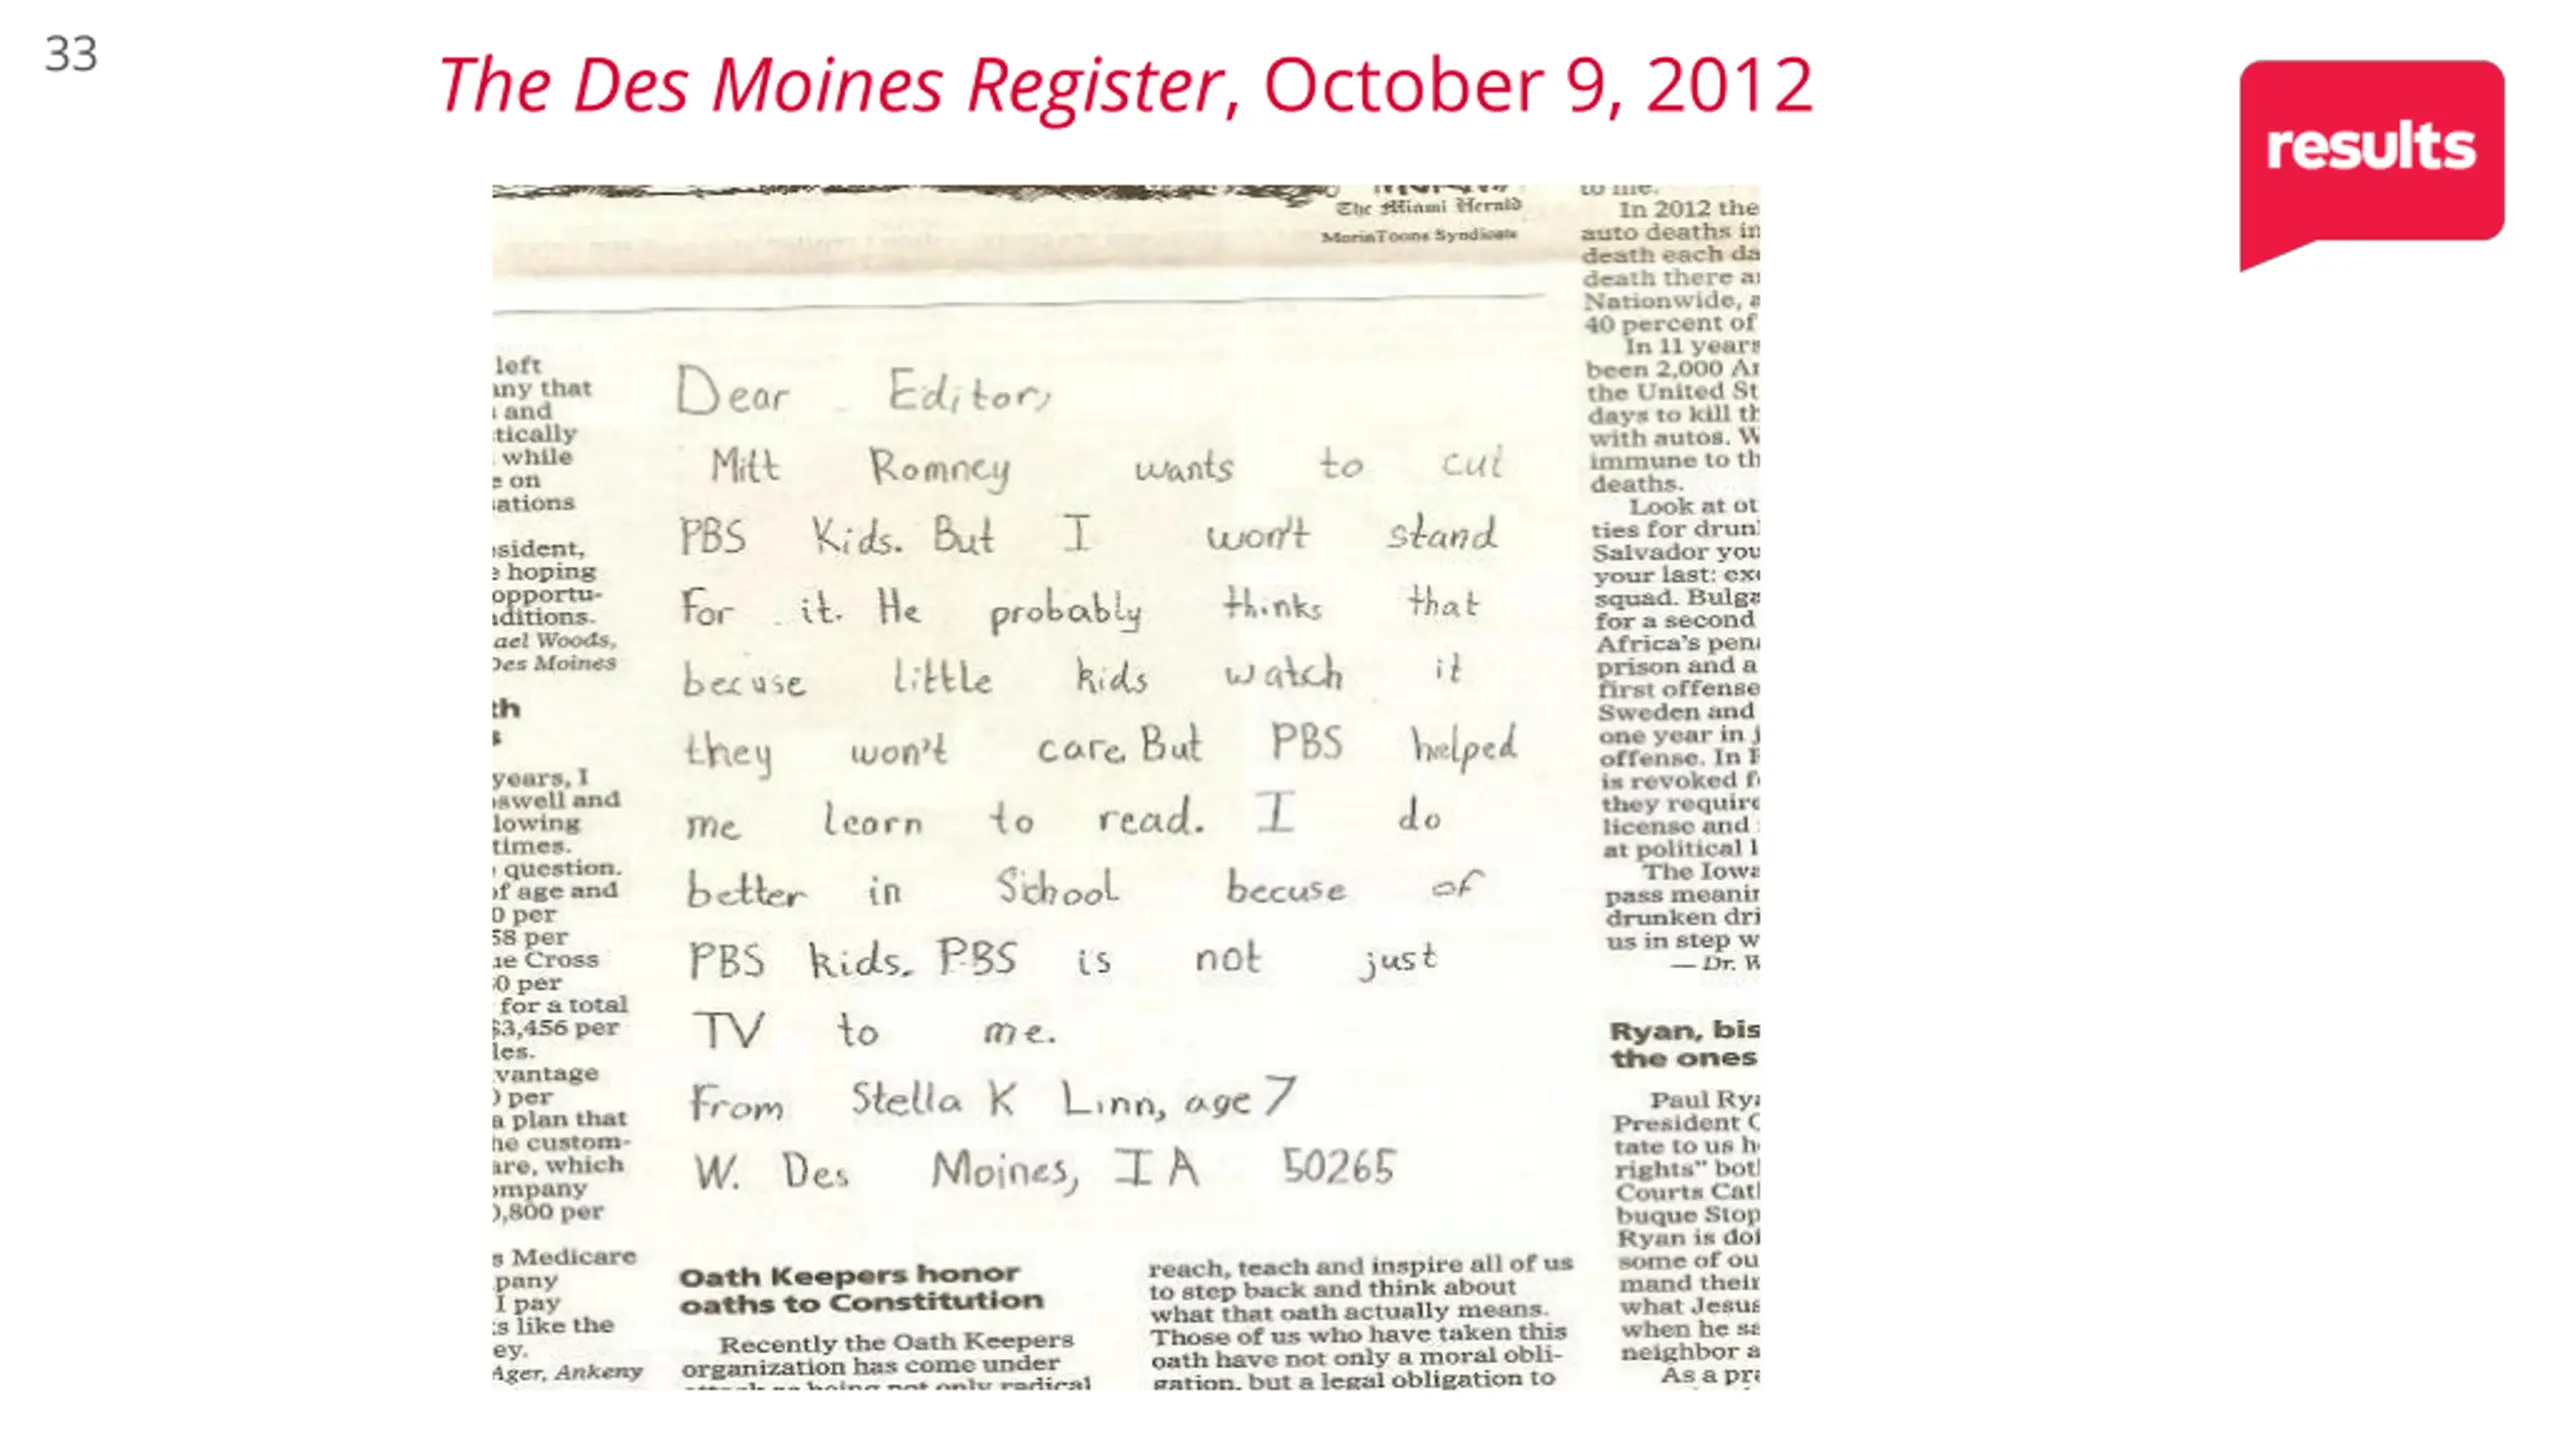 33
The Des Moines Register, October 9, 2012
results
The Miami Herald
MorinToons Syndicate
left
any that
and
tically
while
e on
sations
esident,
e hoping
opportu-
nditions.
ael Woods,
Des Moines
th
s
years, I
oswell and
lowing
times.
question.
of age and
0 per
58 per
ue Cross
0 per
for a total
$3,456 per
les.
vantage
0 per
a plan that
he custom-
are, which
ompany
0,800 per
s Medicare
pany
I pay
s like the
ey.
Ager, Ankeny
Dear Editor,
Mitt Romney wants to cut
PBS Kids. But I won't stand
For it. He probably thinks that
becuse little kids watch it
they won't care. But PBS helped
me learn to read. I do
better in School becuse of
PBS kids. PBS is not just
TV to me.
From Stella K Linn, age 7
W. Des Moines, IA 50265
Oath Keepers honor
oaths to Constitution
Recently the Oath Keepers
organization has come under
reach, teach and inspire all of us
to step back and think about
what that oath actually means.
Those of us who have taken this
oath have not only a moral obli-
gation, but a legal obligation to
to me.
In 2012 the
auto deaths in
death each da
death there a
Nationwide, a
40 percent of
In 11 years
been 2,000 A
the United St
days to kill th
with autos. W
immune to th
deaths.
Look at ot
ties for drun
Salvador you
your last: ex
squad. Bulga
for a second
Africa's pen
prison and a
first offense
Sweden and
one year in j
offense. In
is revoked f
they require
license and
at political l
The Iowa
pass meanin
drunken dri
us in step w
— Dr. W
Ryan, bis
the ones
Paul Rya
President O
tate to us h
rights" bot
Courts Cat
buque Stop
Ryan is doi
some of ou
mand their
what Jesus
when he sa
neighbor a
As a pra